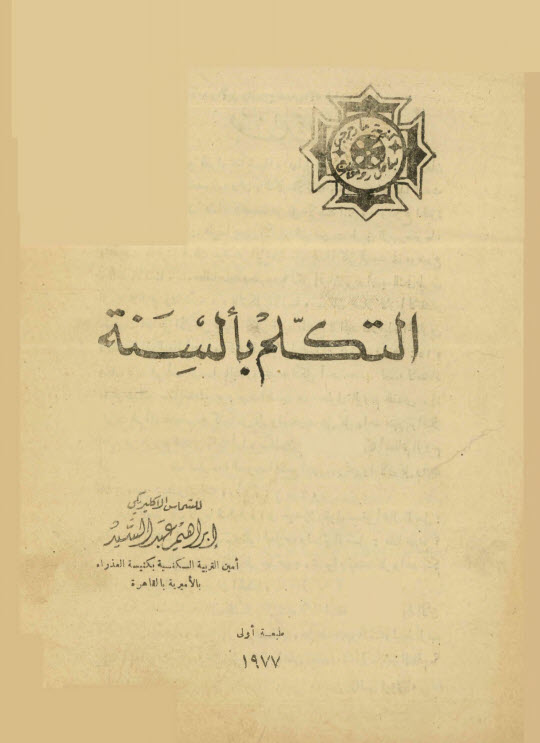 كنيسة مار جرجس
التكلّم بألسِنَة
للشماس الإكليريكي
إبراهيم عبد السيد
أمين التربية الكنسية بكنيسة العذراء
بالأميرية بالقاهرة
طبعة أولى
١٩٧٧